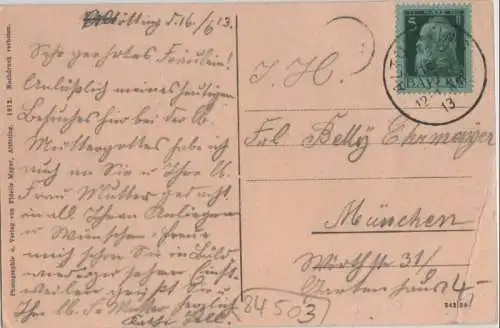 Ötting d. 16./6 13.
Sehr geehrtes Fräulein!
Anläßlich meines heutigen
Besuches hier bei der lb.
Muttergottes habe ich
auch an Sie u Ihre lb.
Frau Mutter gedacht
in all Ihren Anliegen
u Wünschen. Freue
mich schon Sie in Bälde
wieder sehen
weilen grüßt Sie u
Ihre lb. Fr. Mutter herzlich
Photographie u. Verlag von Fidelis Mayer, Altötting. 1912. Nachdruck verboten.
5
BAYERN
13
I. H.
Frl. Betty Ehrmayer
München
Wörthstr. 31/
Gartenhaus 4
84503